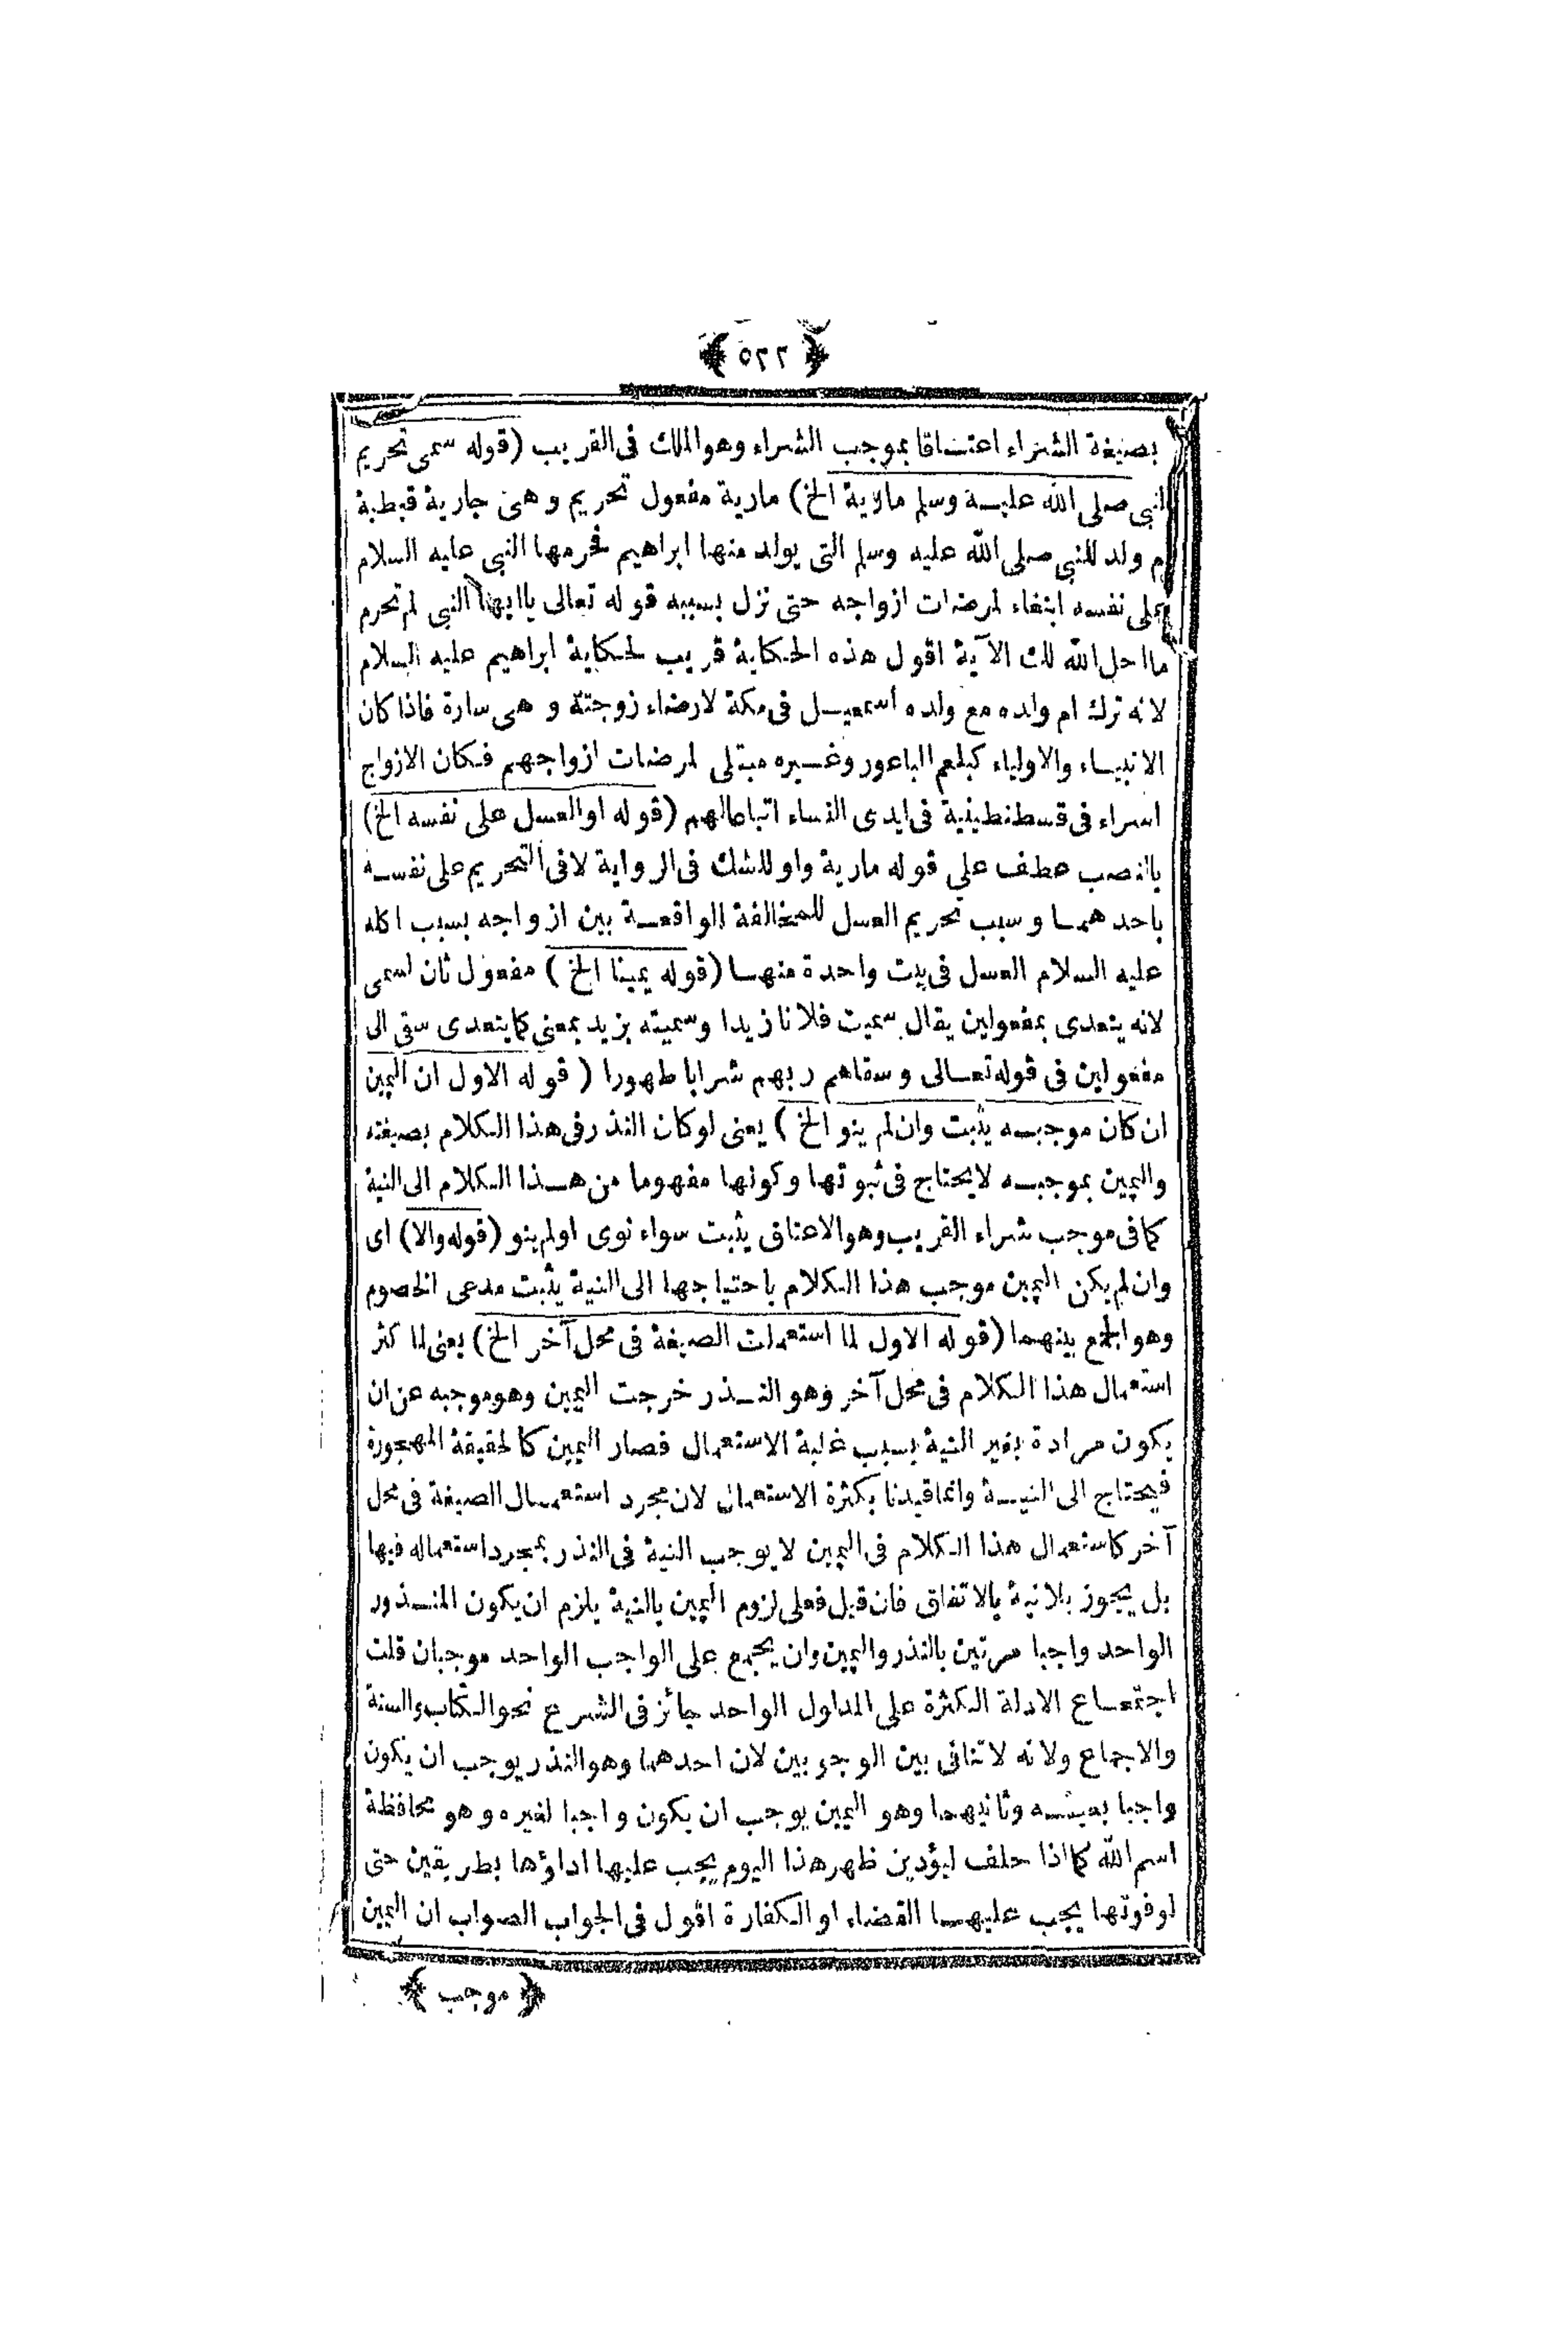 ﴿ ٥٢٢ ﴾
بصيغة الشراء اعتاقا بموجب الشراء وهو الملك فى القريب (قوله سمى تحريم
النبى صلى الله عليه وسلم مارية الخ) مارية مفعول تحريم وهى جارية قبطية
ام ولد للنبى صلى الله عليه وسلم التى يولد منها ابراهيم فحرمها النبى عليه السلام
على نفسه ابتغاء لمرضات ازواجه حتى نزل بسببه قوله تعالى ياايها النبى لم تحرم
مااحل الله لك الآية اقول هذه الحكاية قريب لحكاية ابراهيم عليه السلام
لانه ترك ام ولده مع ولده اسمعيل فى مكة لارضاء زوجته وهى سارة فاذا كان
الانبياء والاولياء كبلعم الباعور وغيره مبتلى لمرضات ازواجهم فكان الازواج
اسراء فى قسطنطينية فى ايدى النساء اتباعا لهم (قوله او العسل على نفسه الخ)
بالنصب عطف على قوله مارية واو للشك فى الرواية لا فى التحريم على نفسه
باحدهما وسبب تحريم العسل للمخالفة الواقعة بين ازواجه بسبب اكله
عليه السلام العسل فى بيت واحدة منها (قوله يمينا الخ) مفعول ثان لسمى
لانه يتعدى بمفعولين يقال سميت فلانا زيدا وسميته بزيد بمعنى كما يتعدى سقى الى
مفعولين فى قوله تعالى وسقاهم ربهم شرابا طهورا (قوله الاول ان اليمين
ان كان موجبه يثبت وان لم ينو الخ) يعنى لو كان النذر فى هذا الكلام بصيغته
واليمين بموجبه لا يحتاج فى ثبوتها وكونها مفهوما من هذا الكلام الى النية
كما فى موجب شراء القريب وهو الاعتاق يثبت سواء نوى اولم ينو (قوله والا) اى
وان لم يكن اليمين موجب هذا الكلام باحتياجها الى النية يثبت مدعى الخصوم
وهو الجمع بينهما (قوله الاول لما استعملت الصيغة فى محل آخر الخ) يعنى لما كثر
استعمال هذا الكلام فى محل آخر وهو النذر خرجت اليمين وهو موجبه عن ان
يكون مرادة بغير النية بسبب غلبة الاستعمال فصار اليمين كالحقيقة المهجورة
فيحتاج الى النية وانما قيدنا بكثرة الاستعمال لان مجرد استعمال الصيغة فى محل
آخر كاستعمال هذا الكلام فى اليمين لا يوجب النية فى النذر بمجرد استعماله فيها
بل يجوز بلا نية بالاتفاق فان قيل فعلى لزوم اليمين بالنية يلزم ان يكون المنذور
الواحد واجبا مرتين بالنذر واليمين وان يجتمع على الواجب الواحد موجبان قلت
اجتماع الادلة الكثرة على المدلول الواحد جائز فى الشرع نحو الكتاب والسنة
والاجماع ولانه لا تنافى بين الوجوبين لان احدهما وهو النذر يوجب ان يكون
واجبا بعينه وثانيهما وهو اليمين يوجب ان يكون واجبا لغيره وهو محافظة
اسم الله كما اذا حلف ليؤدين ظهر هذا اليوم يجب عليها اداؤها بطريقين حتى
لو فوتها يجب عليها القضاء او الكفارة اقول فى الجواب الصواب ان اليمين
﴿ موجب ﴾